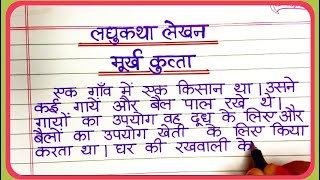 लघुकथा लेखन
मूर्ख कुत्ता
एक गाँव में एक किसान था। उसने
कई गायें और बैल पाल रखे थे।
गायों का उपयोग वह दूध के लिए और
बैलों का उपयोग खेती के लिए किया
करता था। घर की रखवाली के